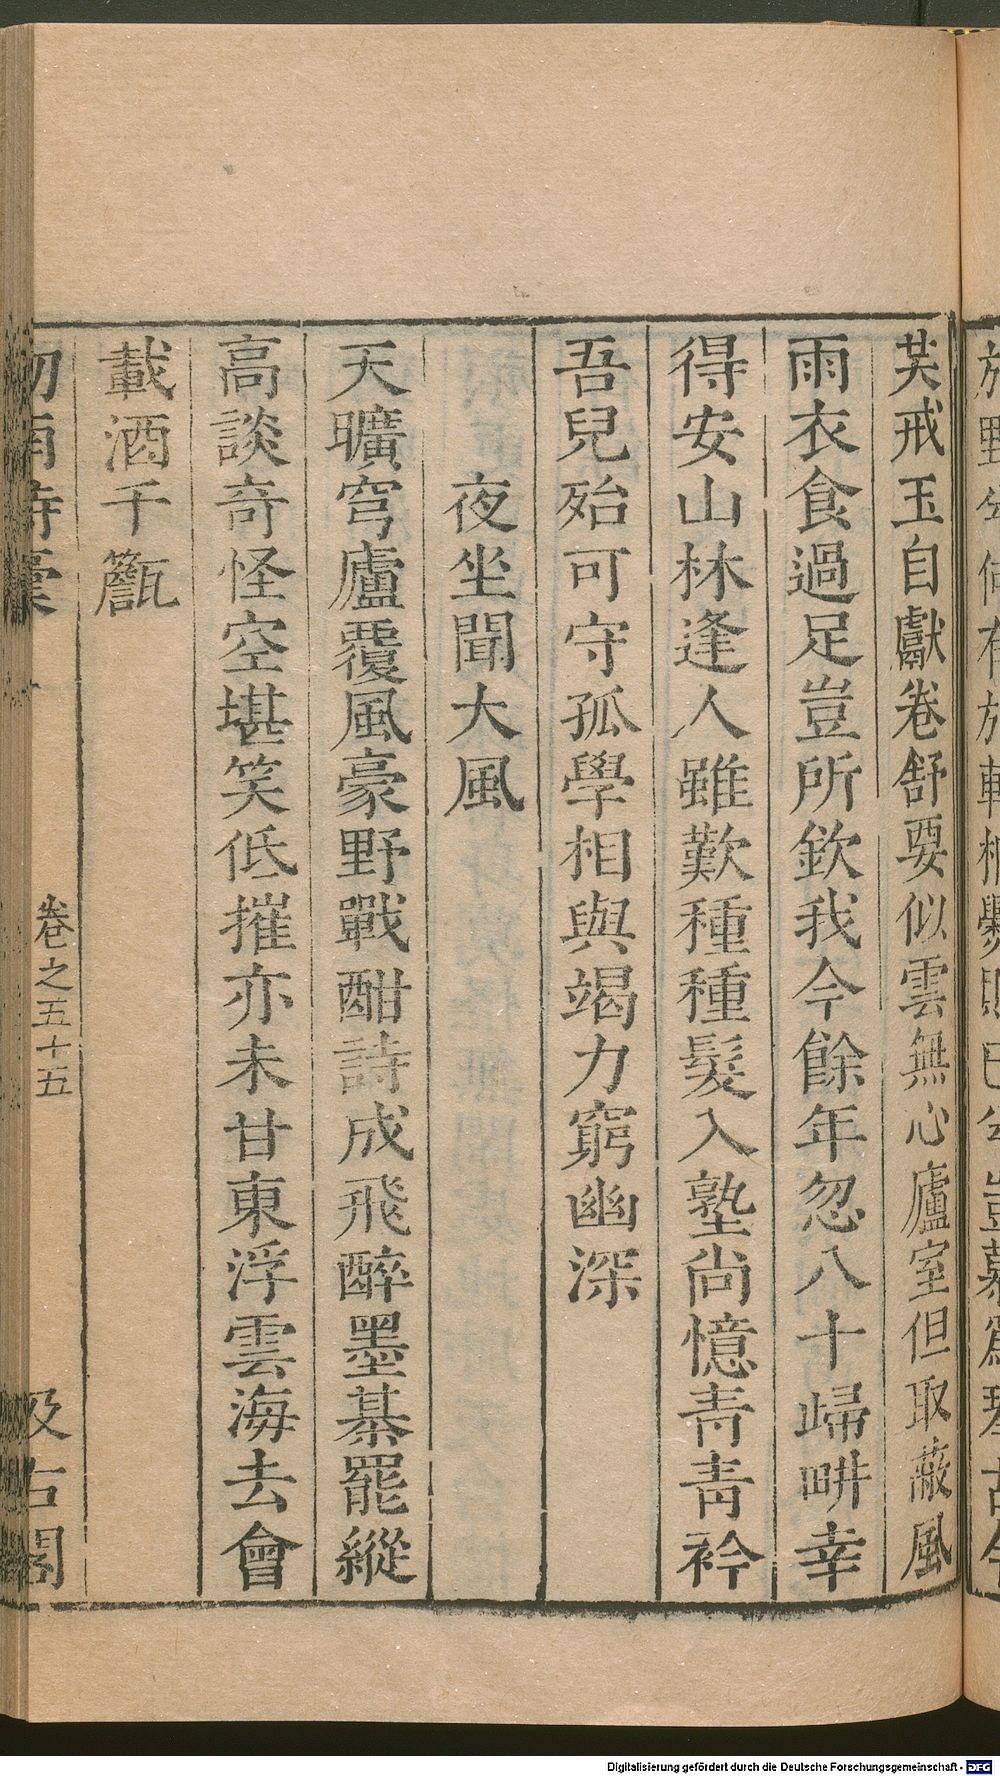 芺戒玉自獻卷舒要似雲無心廬室但取蔽風
雨衣食過足豈所欽我今餘年忽八十歸畊幸
得安山林逢人雖歎種種髮入塾尚憶青青衿
吾兒殆可守孤學相與竭力窮幽深
夜坐聞大風
天曠穹廬覆風豪野戰酣詩成飛醉墨棊罷縱
高談奇怪空堪笑低摧亦未甘東浮雲海去會
載酒千甔
劒南詩稾
卷之五十五
汲古閣
Digitalisierung gefördert durch die Deutsche Forschungsgemeinschaft - DFG